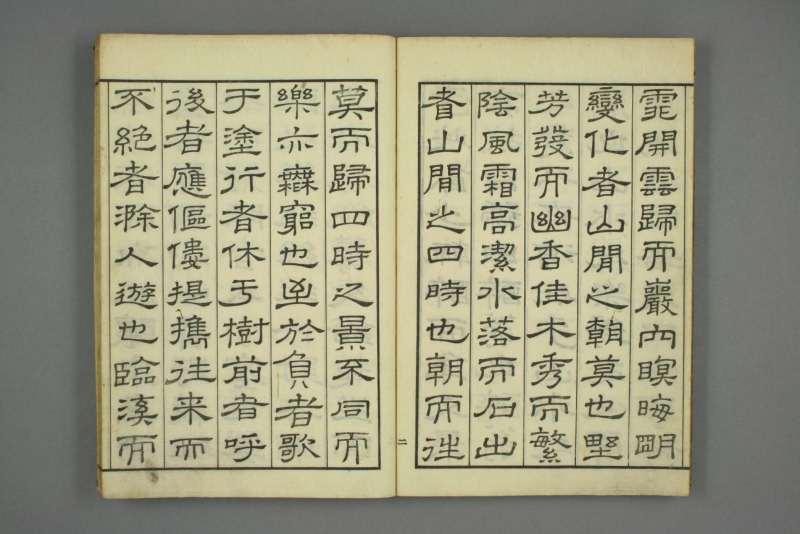 霏開雲歸而巖穴暝晦明
變化者山閒之朝莫也野
芳發而幽香佳木秀而繁
陰風霜高潔水落而石出
者山閒之四時也朝而往
二
莫而歸四時之景不同而
樂亦無窮也至於負者歌
于塗行者休于樹前者呼
後者應傴僂提攜往來而
不絕者滁人遊也臨溪而